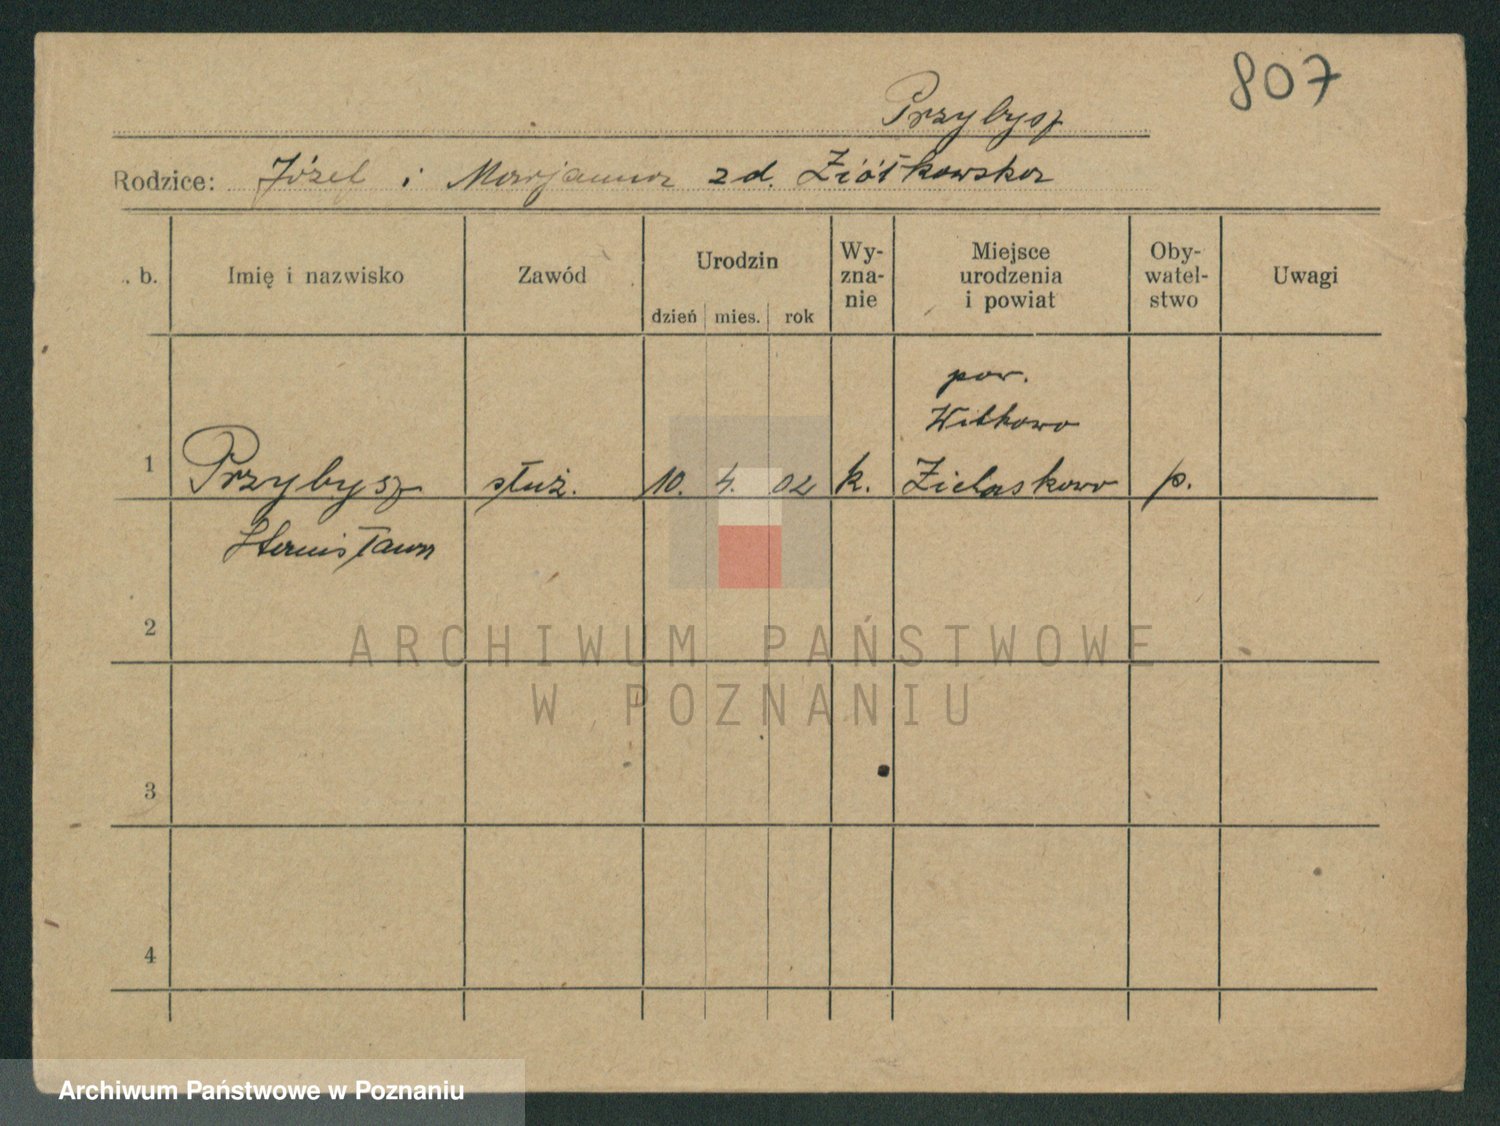 807
Przybysz
Rodzice: Józef i Marjanna zd. Ziółkowska
. b. Imię i nazwisko Zawód Urodzin Wy-zna-nie Miejsce urodzenia i powiat Oby-watel-stwo Uwagi
dzień mies. rok
pow.
Witkowo
1 Przybysz służ. 10. 4. 02 k. Zielaskowo p.
Stanisława
2
3
4
ARCHIWUM PAŃSTWOWE
W POZNANIU
Archiwum Państwowe w Poznaniu